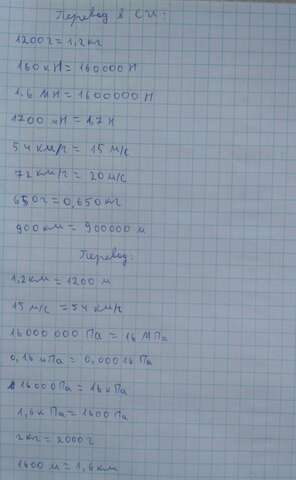 Перевод в СИ:
1200г = 1,2кг
160 кН = 160000 Н
1,6 МН = 1600000 Н
1700 мН = 1,7 Н
54 км/ч = 15 м/с
72 км/ч = 20 м/с
650г = 0,650 кг
900 км = 900000 м
Перевод:
1,2 км = 1200 м
15 м/с = 54 км/ч
16000 000 Па = 16 МПа
0,16 мПа = 0,00016 Па
16000Па = 16кПа
1,6к Па = 1600 Па
2кг = 2000 г
1600 м = 1,6км